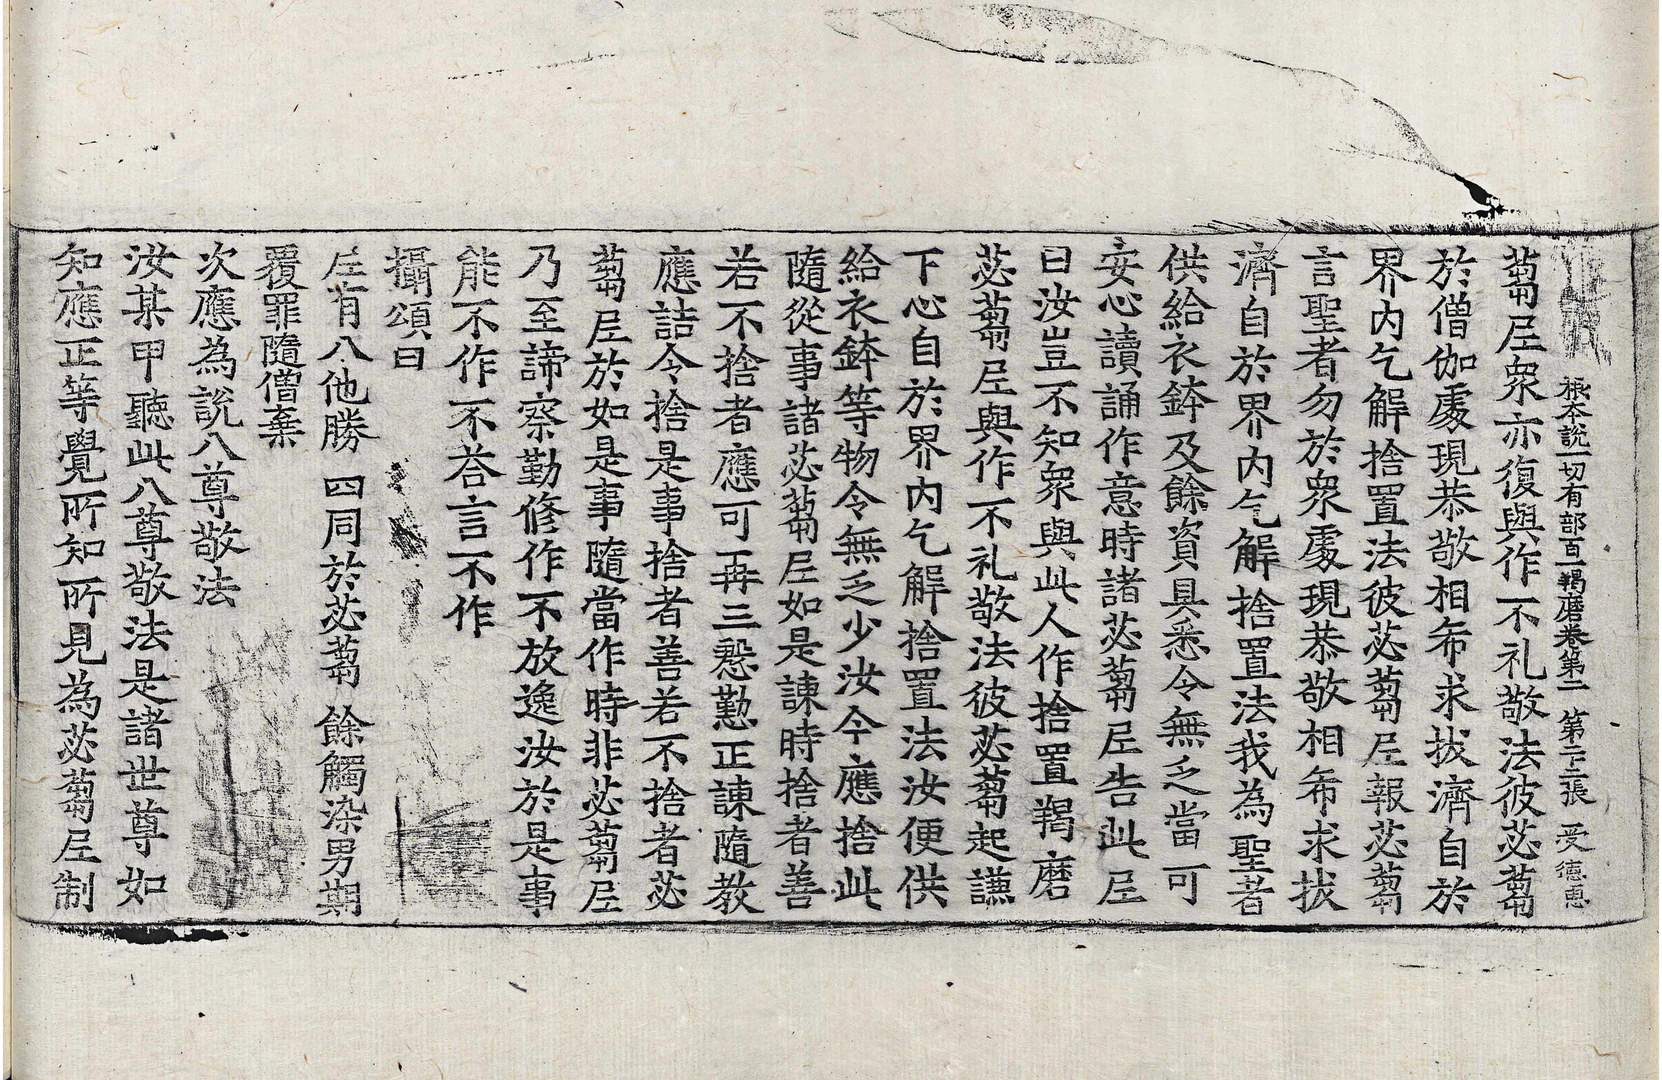 根本說一切有部百一羯磨卷第二 第二十二張 受 德惠
蒭尼衆亦復與作不礼敬法彼苾蒭
於僧伽處現恭敬相希求拔濟自於
界內乞解捨置法彼苾蒭尼報苾蒭
言聖者勿於衆處現恭敬相希求拔
濟自於界內乞解捨置法我為聖者
供給衣鉢及餘資具悉令無乏當可
安心讀誦作意時諸苾蒭尼告此尼
曰汝豈不知衆與此人作捨置羯磨
苾蒭尼與作不礼敬法彼苾蒭起謙
下心自於界內乞解捨置法汝便供
給衣鉢等物令無乏少汝今應捨此
隨從事諸苾蒭尼如是諫時捨者善
若不捨者應可再三慇懃正諫隨教
應詰令捨是事捨者善若不捨者苾
蒭尼於如是事隨當作時非苾蒭尼
乃至諦察勤修作不放逸汝於是事
能不作不荅言不作
攝頌曰
尼有八他勝 四同於苾蒭 餘觸染男期
覆罪隨僧棄
次應為說八尊敬法
汝某甲聽此八尊敬法是諸世尊如
知應正等覺所知所見為苾蒭尼制